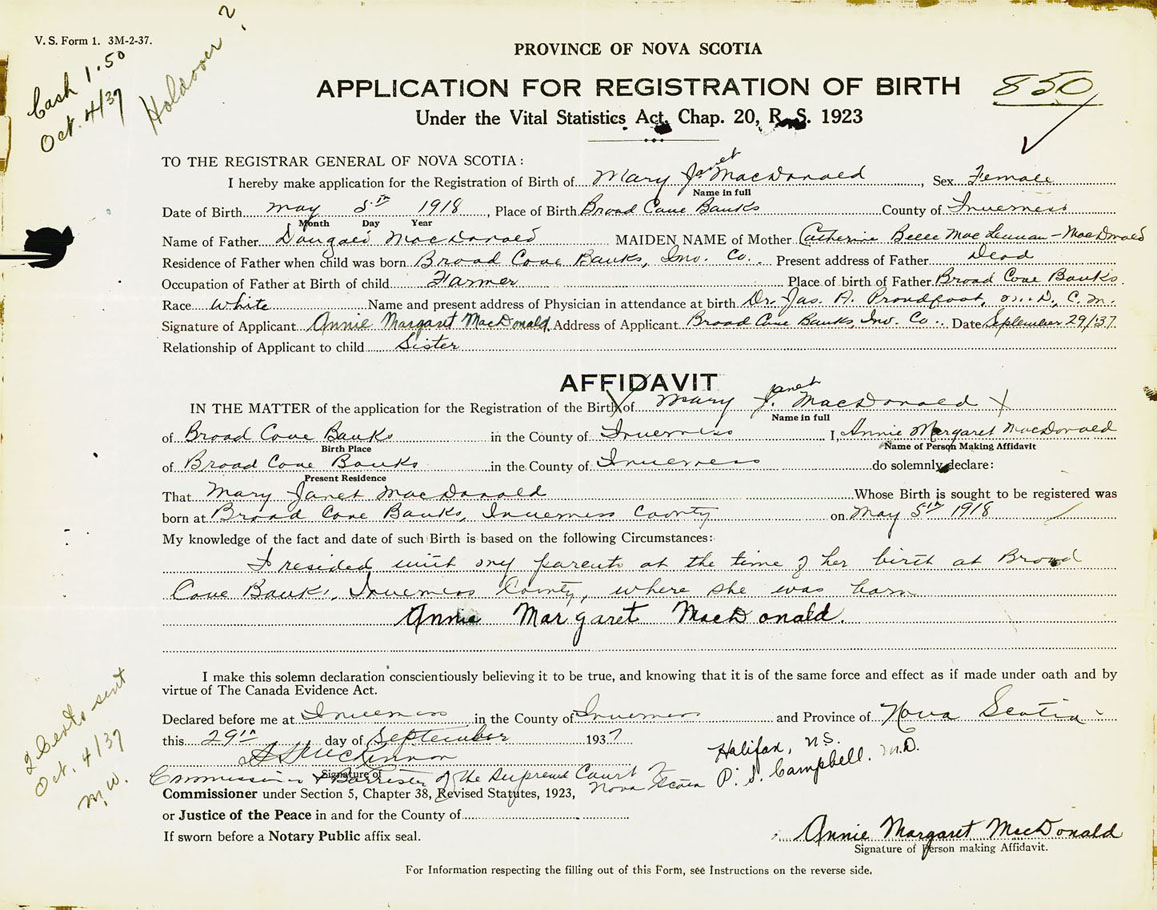 V. S. Form 1. 3M-2-37.
Cash 1.50
Oct. 4/37
Holdover ?
PROVINCE OF NOVA SCOTIA
APPLICATION FOR REGISTRATION OF BIRTH
850
Under the Vital Statistics Act, Chap. 20, R. S. 1923
TO THE REGISTRAR GENERAL OF NOVA SCOTIA:
I hereby make application for the Registration of Birth of Mary Janet MacDonald, Sex Female
Name in full
Date of Birth May 5th 1918, Place of Birth Broad Cove Banks County of Inverness
Month Day Year
Name of Father Dougald MacDonald MAIDEN NAME of Mother Catherine Belle MacLennan-MacDonald
Residence of Father when child was born Broad Cove Banks, Inv. Co. Present address of Father Dead
Occupation of Father at Birth of child Farmer Place of birth of Father Broad Cove Banks.
Race White Name and present address of Physician in attendance at birth Dr. Jas. A. Proudfoot, M.D., C.M.
Signature of Applicant Annie Margaret MacDonald. Address of Applicant Broad Cove Banks, Inv. Co. Date September 29/37.
Relationship of Applicant to child Sister
AFFIDAVIT
IN THE MATTER of the application for the Registration of the Birth X of Mary J. Janet MacDonald X
Name in full
of Broad Cove Banks in the County of Inverness I, Annie Margaret MacDonald
Birth Place Name of Person Making Affidavit
of Broad Cove Banks in the County of Inverness do solemnly declare:
Present Residence
That Mary Janet MacDonald Whose Birth is sought to be registered was
born at Broad Cove Banks, Inverness County on May 5th 1918
My knowledge of the fact and date of such Birth is based on the following Circumstances:
I resided with my parents at the time of her birth at Broad
Cove Banks, Inverness County, where she was born
Annie Margaret MacDonald.
I make this solemn declaration conscientiously believing it to be true, and knowing that it is of the same force and effect as if made under oath and by
virtue of The Canada Evidence Act.
2 Certs sent
Oct. 4/37
M.W.
Declared before me at Inverness in the County of Inverness and Province of Nova Scotia
this 29th day of September 1937
Halifax, N.S.
P. S. Campbell. M.D.
Signature of
Barrister of the Supreme Court of Nova Scotia
Commissioner under Section 5, Chapter 38, Revised Statutes, 1923,
or Justice of the Peace in and for the County of
If sworn before a Notary Public affix seal.
Annie Margaret MacDonald
Signature of Person making Affidavit.
For Information respecting the filling out of this Form, see Instructions on the reverse side.